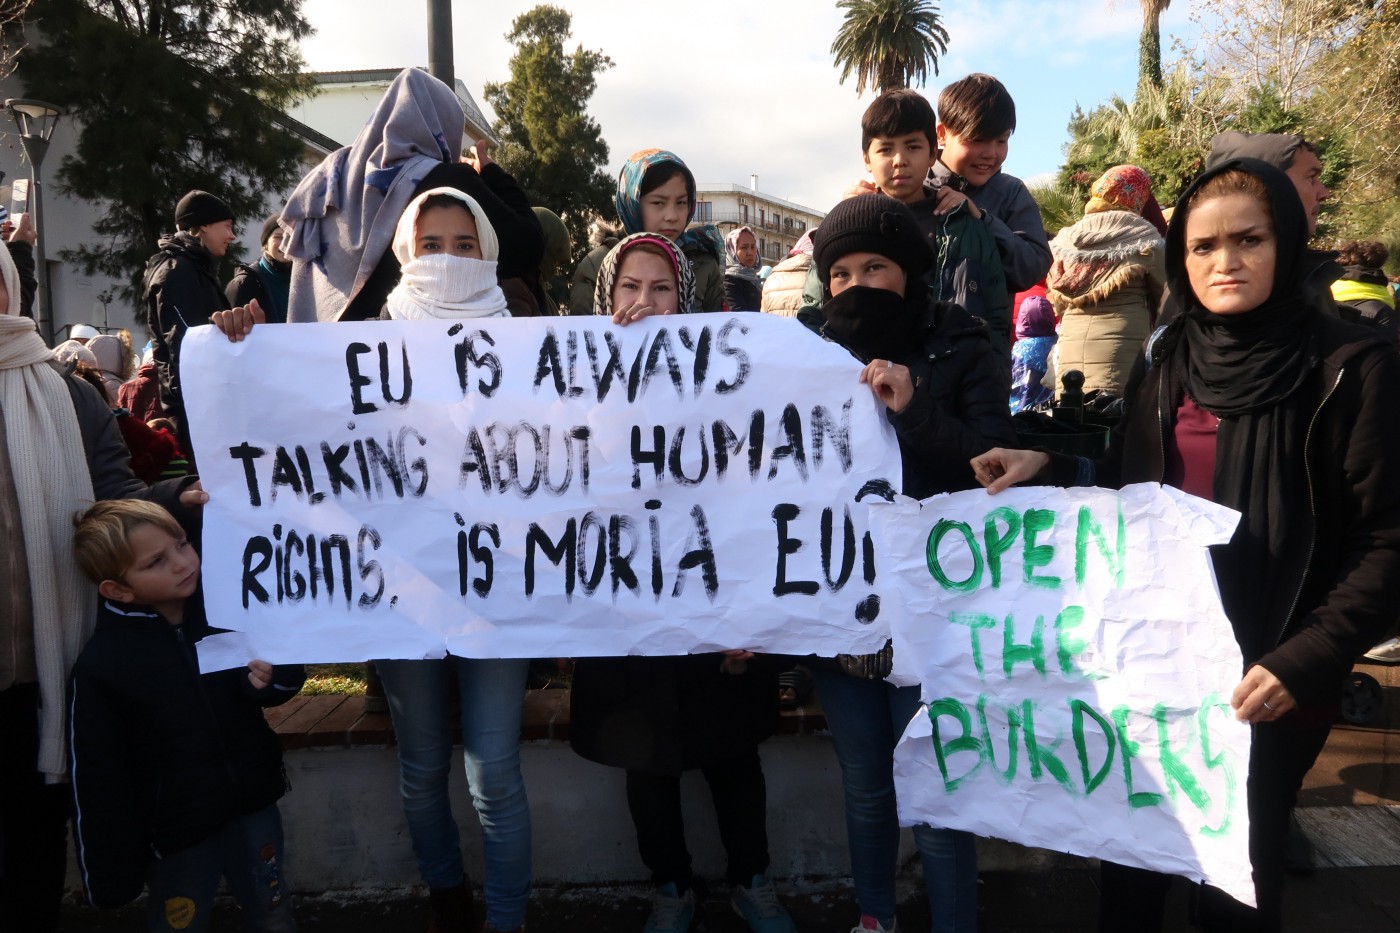 EU iS ALWAYS
TALKiNG ABOUT HUMAN
RiGHTS. iS MORiA EU?
OPEN
THE
BURDERS